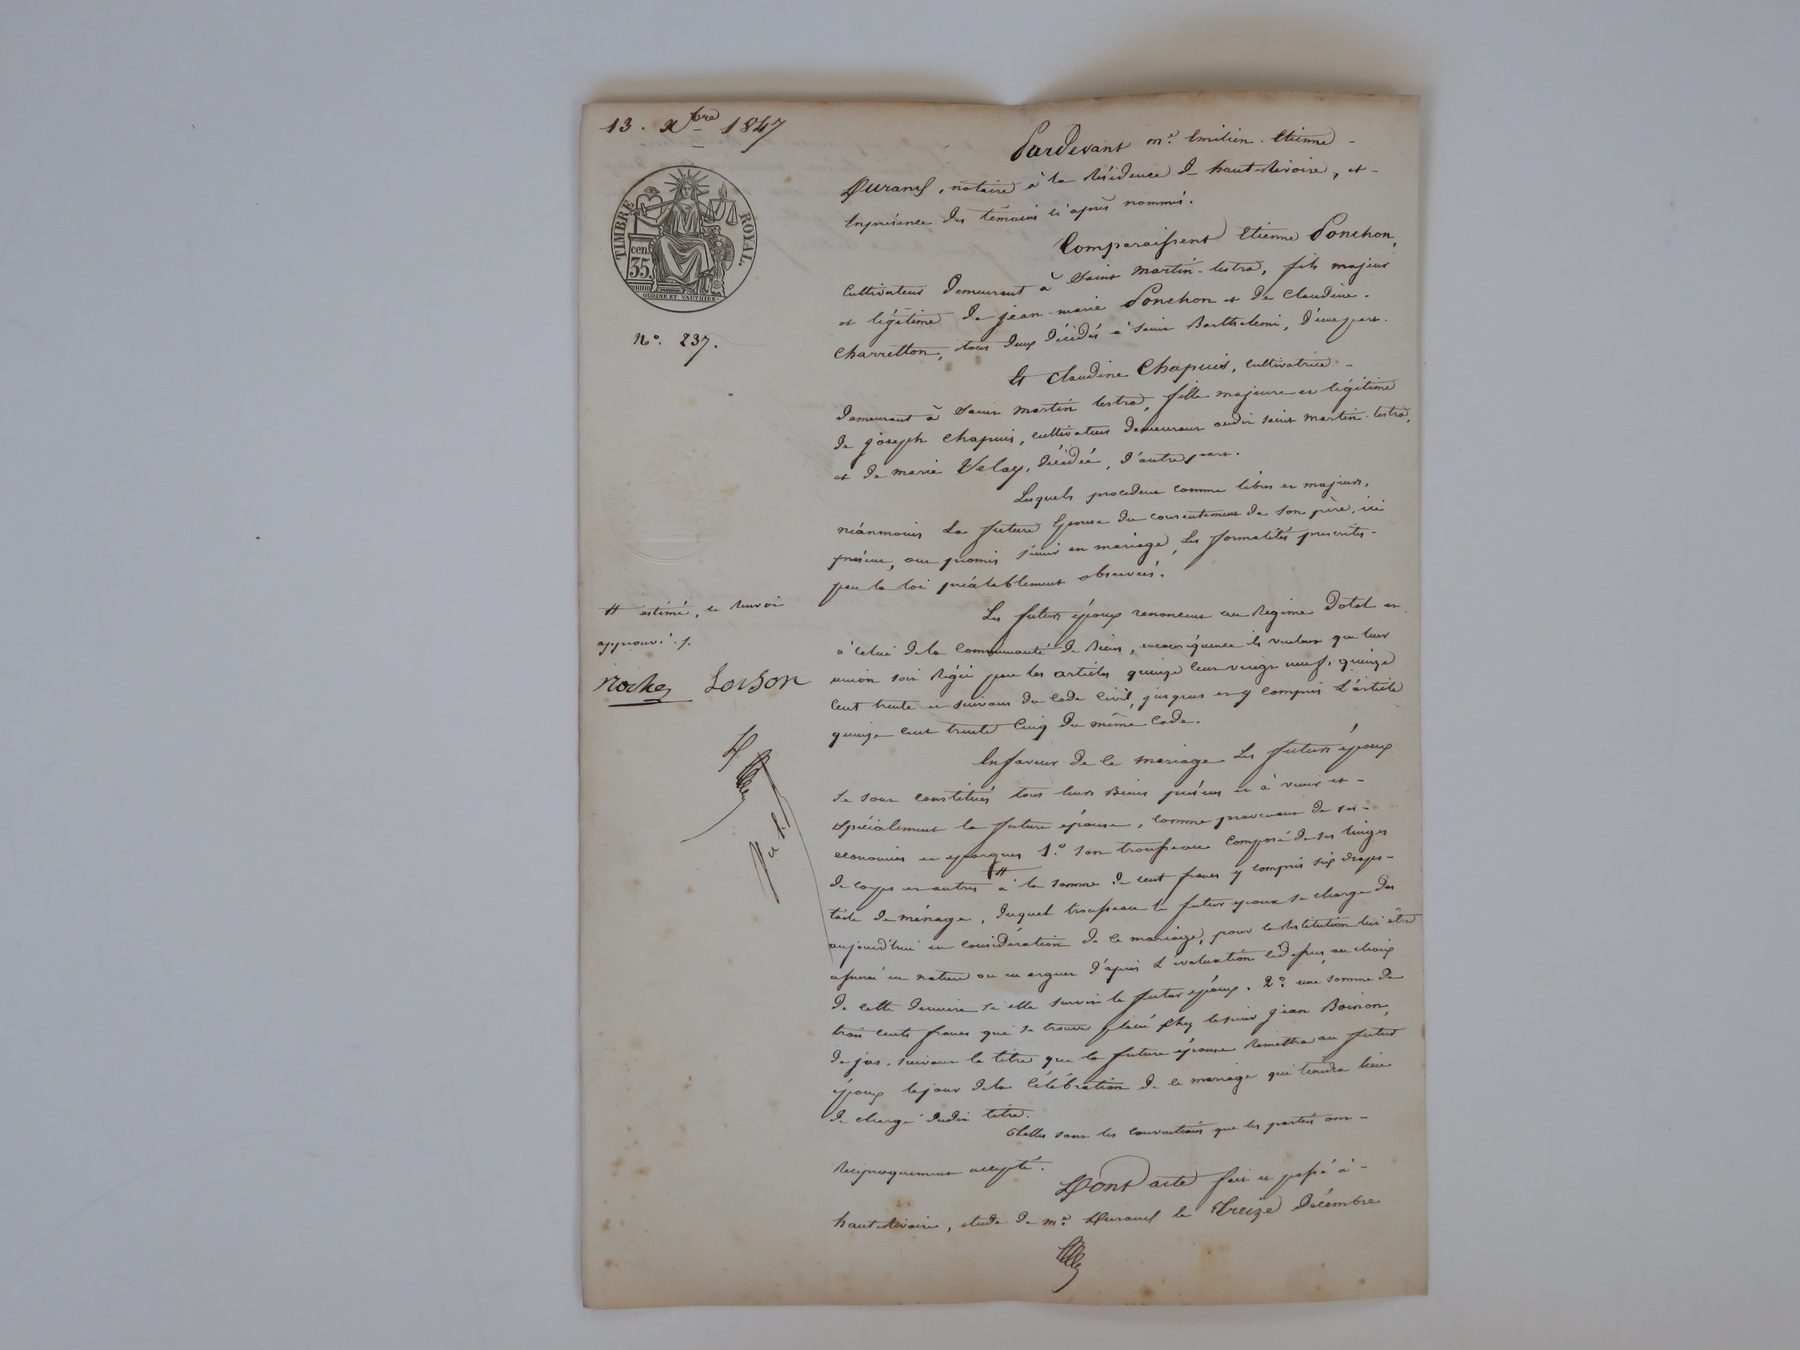 13. Xbre 1847
TIMBRE ROYAL.
cen. 35
OUDINE ET VAUTHIER
N°. 237.
Pardevant me. Emilien Etienne
Durand, notaire à la résidence de haute-rivoire, et
en présence des témoins ci après nommés.
Comparaissent Etienne Ponchon,
cultivateur demeurant à Saint Martin-lestra, fils majeur
et légitime de jean marie Ponchon et de Claudine
Charretton, tous deux décédés à Saint Barthelemi, d'une part.
Et Claudine Chapuis, cultivatrice
demeurant à Saint Martin lestra, fille majeure et légitime
de joseph Chapuis, cultivateur demeurant audit Saint Martin-lestra,
et de marie Velay, décédée, d'autre part.
Lesquels procédent comme libres et majeurs,
néanmoins la future Epouse du consentement de son père, ici
présent, ont promis s'unir en mariage, les formalités prescrites
par la loi préalablement observées.
Les futurs époux renoncent au Régime Dotal et
à celui de la Communauté de Biens, en conséquence ils veulent que leur
union soit Régie par les articles quinze cent vingt neuf, quinze
cent trente et suivans du Code Civil, jusques et y compris L'article
quinze cent trente cinq du même Code.
En faveur de ce mariage Les futurs époux
se sont constitués tous leurs Biens présens et à venir et
spécialement la future épouse, comme provenant de ses
economies et epargnes 1.° son trousseau composé de ses linges
de corps et autres # à la somme de cent francs y compris six draps
toile de ménage, duquel trousseau le futur epoux se charge des
aujourd'hui en considération de ce mariage, pour la Restitution lui être
assurée en nature ou en argent d'après L'evaluation cidessus, au choix
de cette derniere si elle survit le futur époux. 2°. une somme de
trois cents francs qui se trouve placée chez le sieur jean Boinon,
de jas. suivant le titre que la future épouse Remettra au futur
époux le jour de la célébration de ce mariage qui tiendra lieu
de charge dudit titre.
Telles sont les conventions que les parties ont
Réciproquement accepté.
Dont acte fait et passé à
haute-rivoire, etude de me. Durand le Treize Décembre
# estimé, ce Renvoi
approuvé.
Loison